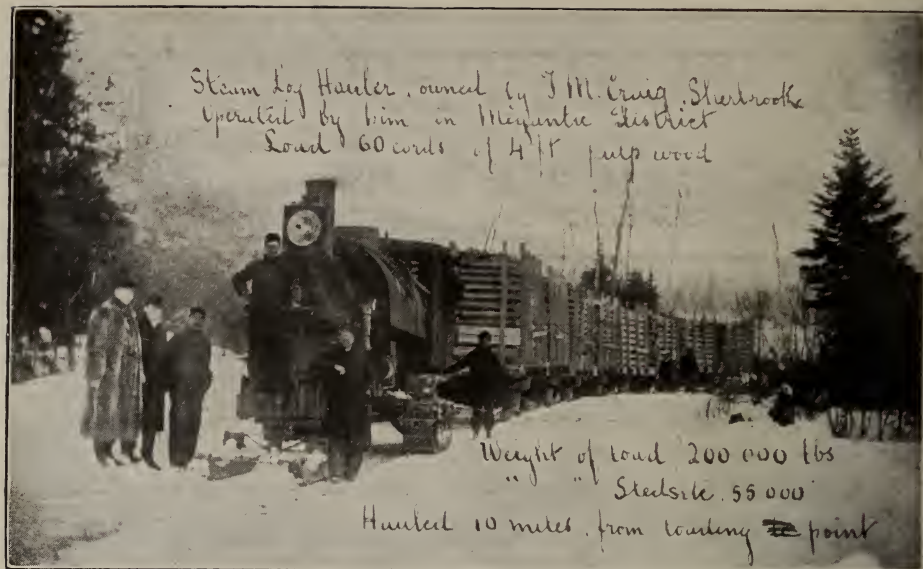 Steam Log Hauler, owned by J M. Craig, Sherbrooke
Operated by him in Megantic District
Load 60 cords of 4 ft pulp wood
Weight of load 200 000 lbs
" " 55 000
Hauled 10 miles, from loading point